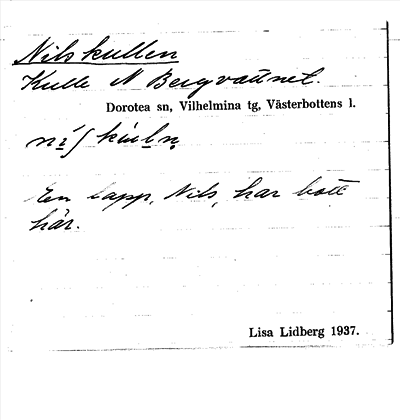 Nilskullen
Kulle N Bergvattnet.
Dorotea sn, Vilhelmina tg, Västerbottens l.
En lapp, Nils, har bott
här.
Lisa Lidberg 1937.